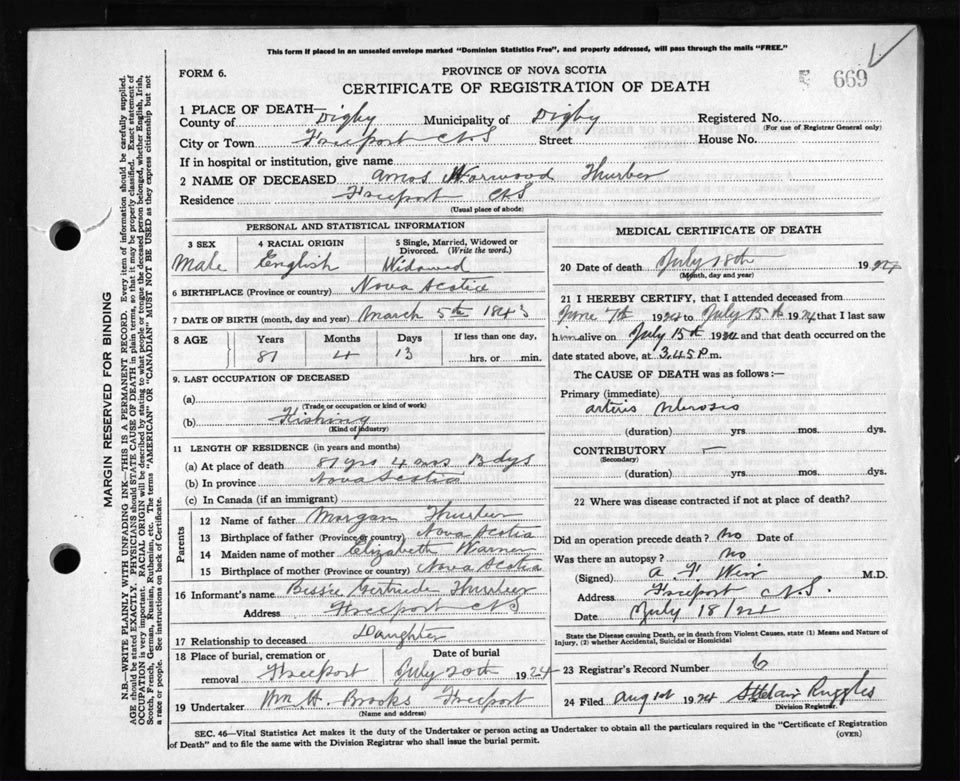 This form if placed in an unsealed envelope marked "Dominion Statistics Free", and properly addressed, will pass through the mails "FREE."
FORM 6.
PROVINCE OF NOVA SCOTIA
669
CERTIFICATE OF REGISTRATION OF DEATH
1 PLACE OF DEATH—
County of Digby Municipality of Digby Registered No.
(For use of Registrar General only)
City or Town Freeport N.S Street House No.
If in hospital or institution, give name
2 NAME OF DECEASED Amos Norwood Thurber
Residence Freeport N.S
(Usual place of abode)
PERSONAL AND STATISTICAL INFORMATION
3 SEX 4 RACIAL ORIGIN 5 Single, Married, Widowed or Divorced. (Write the word.)
Male English Widowed
6 BIRTHPLACE (Province or country) Nova Scotia
7 DATE OF BIRTH (month, day and year) March 5th 1843
8 AGE Years Months Days If less than one day,
81 4 13 hrs. or min.
9. LAST OCCUPATION OF DECEASED
(a)
(Trade or occupation or kind of work)
(b) Fishing
(Kind of industry)
11 LENGTH OF RESIDENCE (in years and months)
(a) At place of death 81 yrs 4 mos 13 dys
(b) In province Nova Scotia
(c) In Canada (if an immigrant)
Parents
12 Name of father Morgan Thurber
13 Birthplace of father (Province or country) Nova Scotia
14 Maiden name of mother Elizabeth Warner
15 Birthplace of mother (Province or country) Nova Scotia
16 Informant's name Bessie Gertrude Thurber
Address Freeport N.S
17 Relationship to deceased Daughter
18 Place of burial, cremation or removal Freeport
Date of burial July 20th 1924
19 Undertaker Wm H. Brooks Freeport
(Name and address)
MEDICAL CERTIFICATE OF DEATH
20 Date of death July 18th 1924
(Month, day and year)
21 I HEREBY CERTIFY, that I attended deceased from
June 7th 1924 to July 15th 1924 that I last saw
him alive on July 15th 1924 and that death occurred on the
date stated above, at 3.45 P m.
The CAUSE OF DEATH was as follows:—
Primary (immediate)
arterio sclerosis
(duration) yrs mos. dys.
CONTRIBUTORY —
(Secondary)
(duration) yrs. mos. dys.
22 Where was disease contracted if not at place of death?
Did an operation precede death? No Date of
Was there an autopsy? No
(Signed) A. F. Weir M.D.
Address Freeport N.S.
Date July 18/24
State the Disease causing Death, or in death from Violent Causes, state (1) Means and Nature of
Injury, (2) whether Accidental, Suicidal or Homicidal
23 Registrar's Record Number 6
24 Filed Aug 1st 1924 StClair Ruggles
Division Registrar.
SEC. 46—Vital Statistics Act makes it the duty of the Undertaker or person acting as Undertaker to obtain all the particulars required in the "Certificate of Registration
of Death" and to file the same with the Division Registrar who shall issue the burial permit.
(OVER)
MARGIN RESERVED FOR BINDING
N.B.—WRITE PLAINLY WITH UNFADING INK—THIS IS A PERMANENT RECORD. Every item of information should be carefully supplied.
AGE should be stated EXACTLY. PHYSICIANS should STATE CAUSE OF DEATH in plain terms, so that it may be properly classified. Exact statement of
OCCUPATION is very important. RACIAL ORIGIN will be described by stating to what people or tongue the deceased person belonged, whether English, Irish,
Scotch, French, German, Russian, Ruthenian, etc. The terms "AMERICAN" or "CANADIAN" MUST NOT BE USED as they express citizenship but not
a race or people. See instructions on back of Certificate.